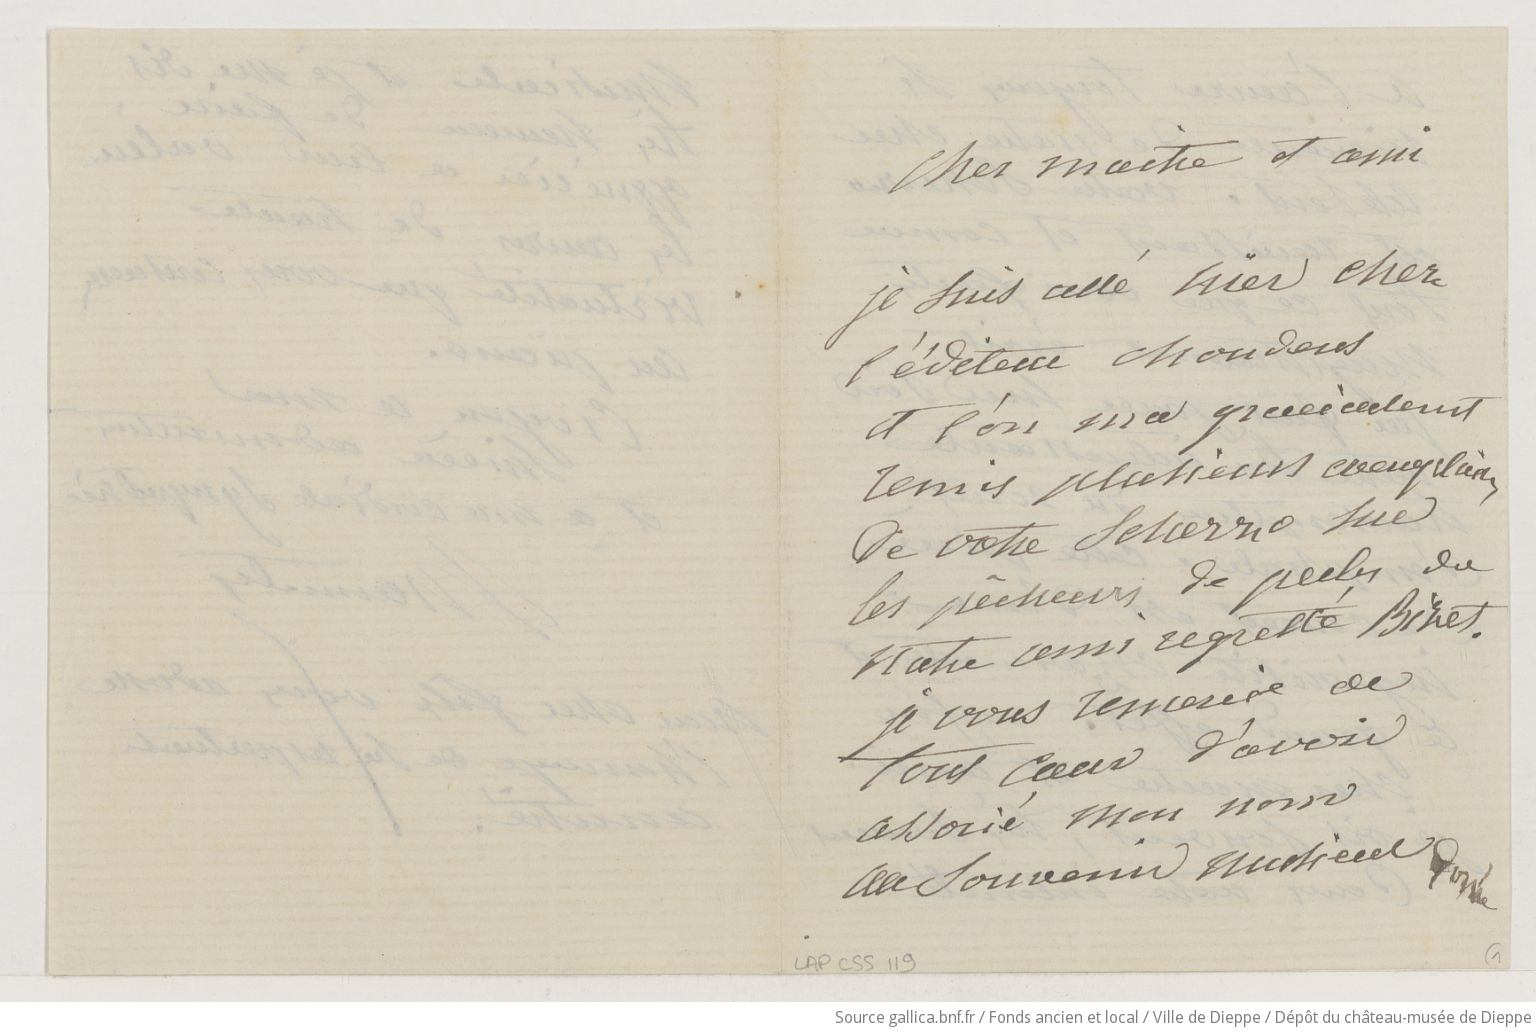 Cher maitre et ami
je suis allé hier chez
l'éditeur Choudens
et l'on m'a gracieusement
remis plusieurs exemplaires
de votre Scherzo sur
les pêcheurs de perles de
notre ami regretté Bizet.
je vous remercie de
tout coeur d'avoir
associé mon nom
au souvenir musical donné
LAP CSS 119
1
Source gallica.bnf.fr / Fonds ancien et local / Ville de Dieppe / Dépôt du château-musée de Dieppe